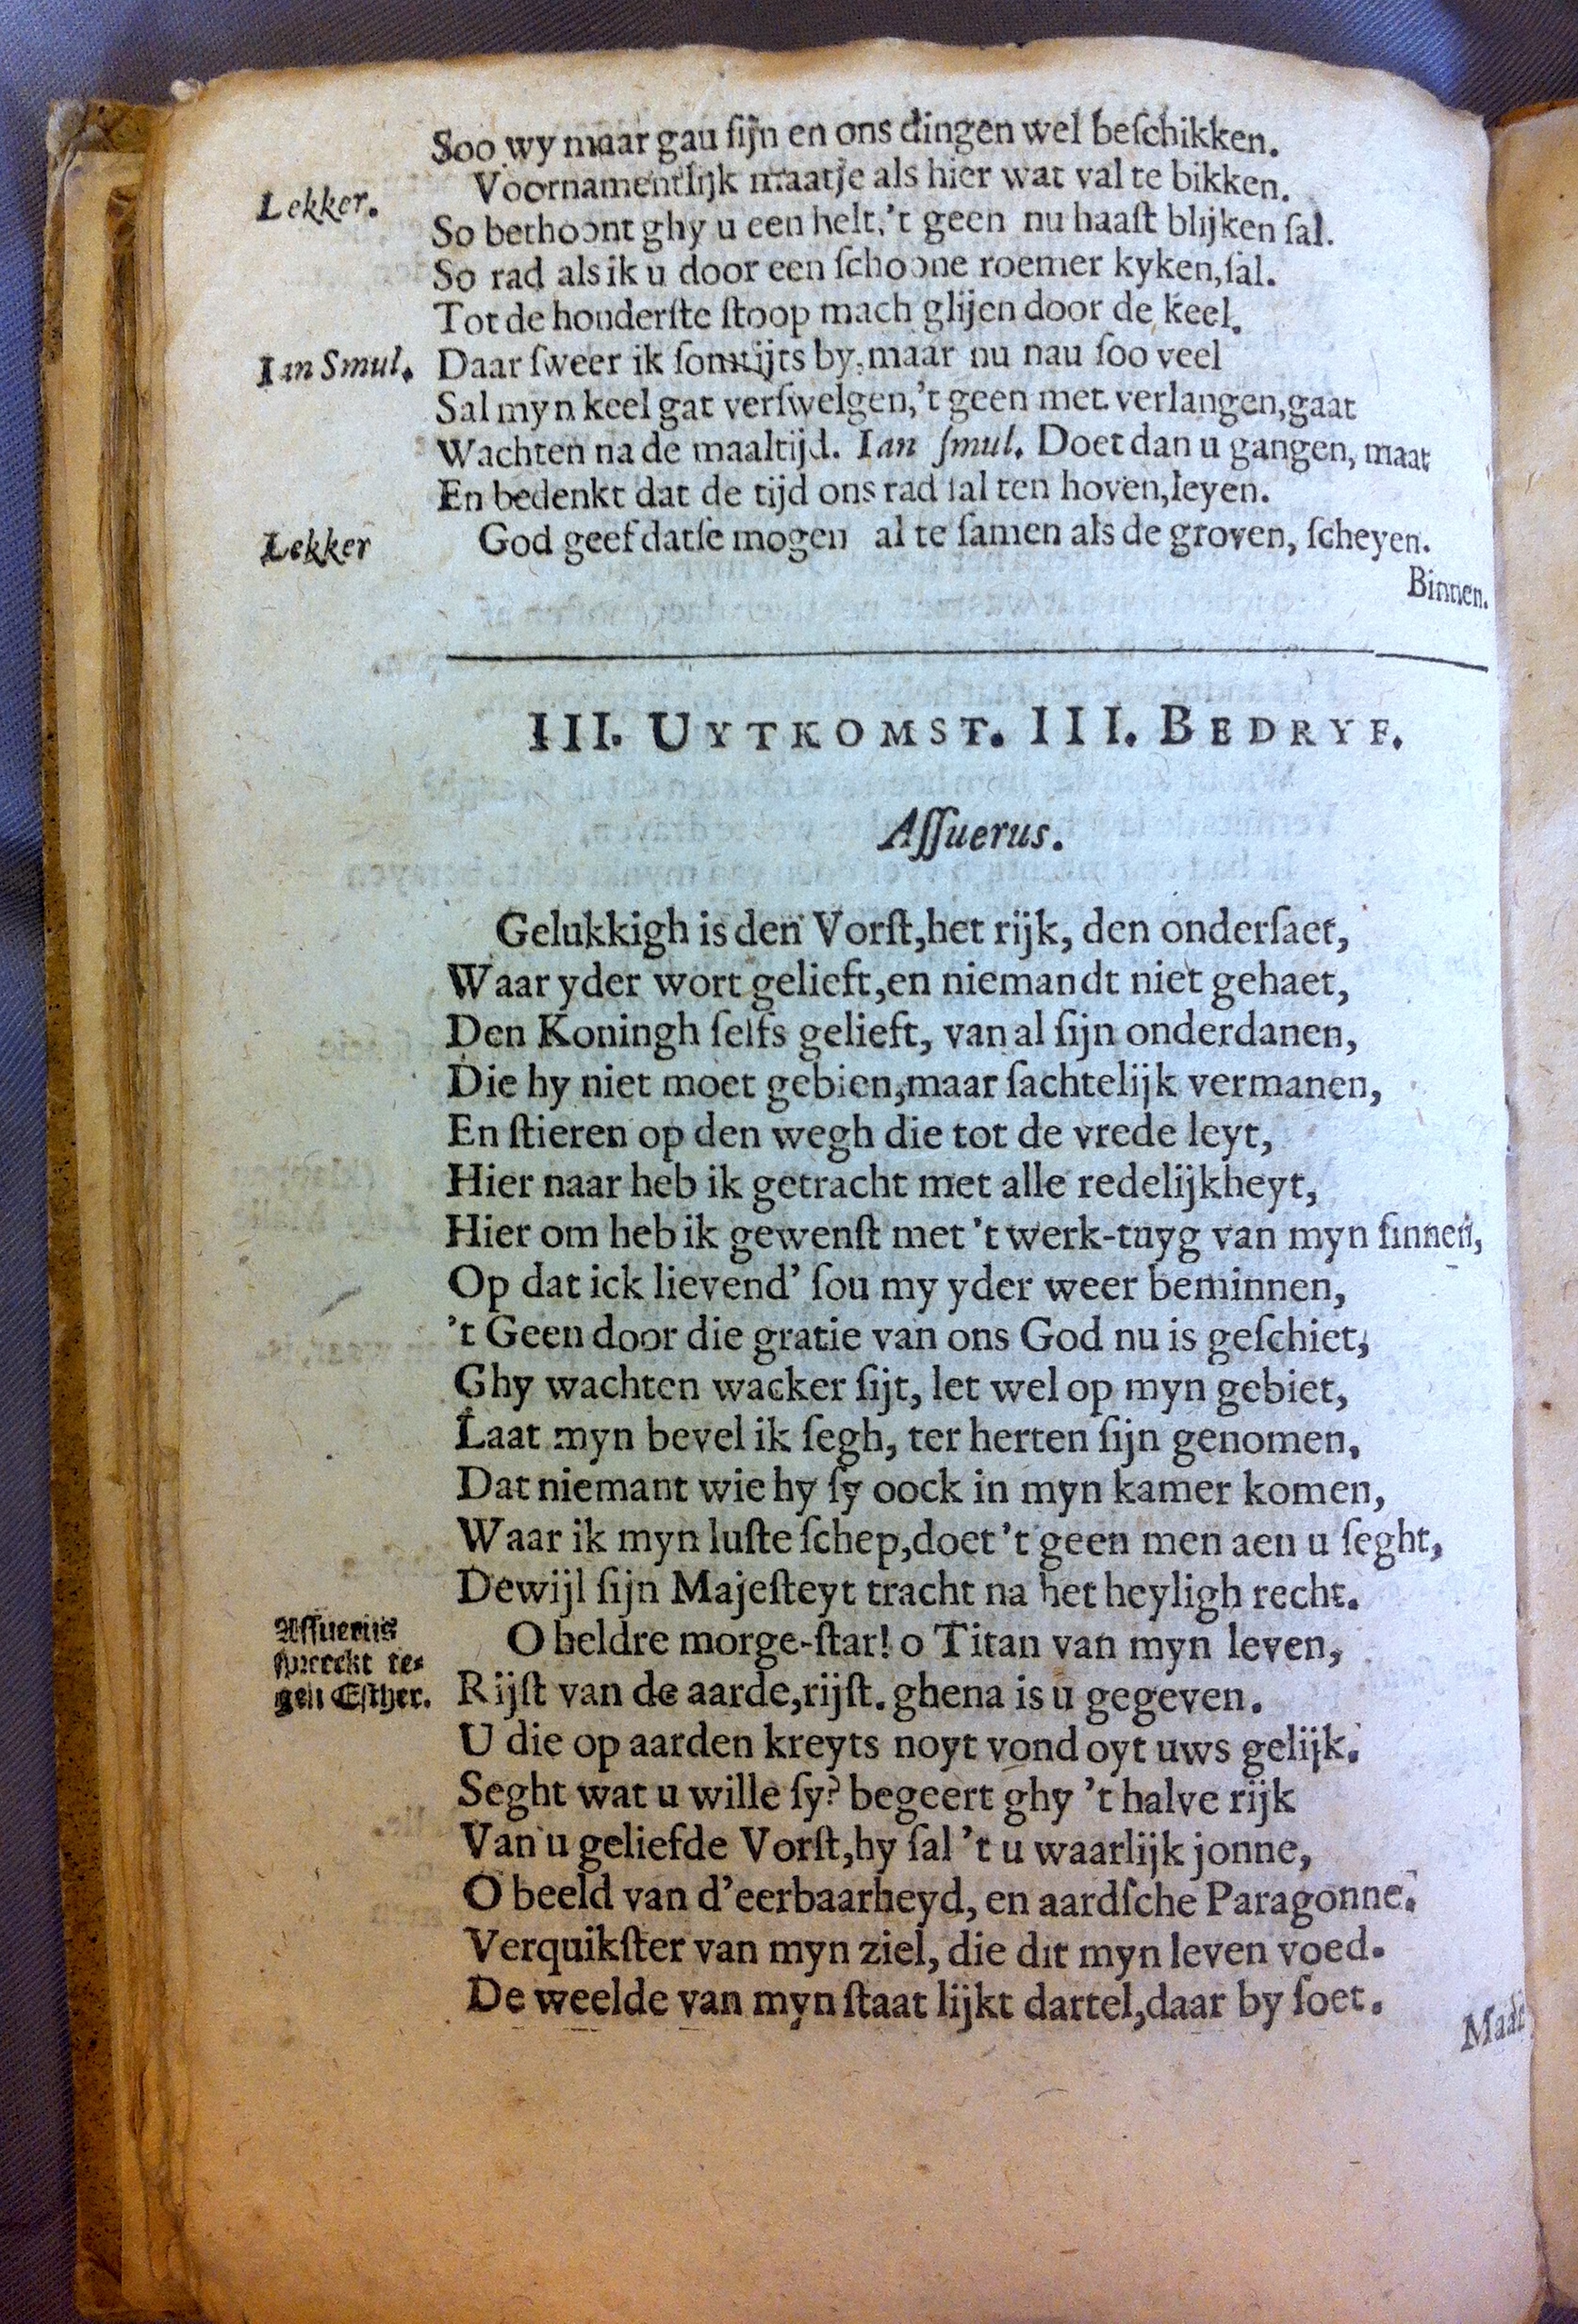 Soo wy maar gau ſijn en ons dingen wel beſchikken.
Voornamentlijk maatje als hier wat val te bikken.
Lekker.
So bethoont ghy u een helt,'t geen nu haaſt blijken ſal.
So rad als ik u door een ſchoone roemer kyken,ſal.
Tot de honderſte ſtoop mach glijen door de keel.
Ian Smul. Daar ſweer ik ſomtijts by,maar nu nau ſoo veel
Sal myn keel gat verſwelgen,'t geen met verlangen,gaat
Wachten na de maaltijd. Ian ſmul. Doet dan u gangen, maat
En bedenkt dat de tijd ons rad ſal ten hoven,leyen.
Lekker God geef datſe mogen al te ſamen als de groven, ſcheyen.
Binnen.
III. UYTKOMST. III. BEDRYF.
Aſſuerus.
Gelukkigh is den Vorſt,het rijk, den onderſaet,
Waar yder wort gelieft,en niemandt niet gehaet,
Den Koningh ſelfs gelieft, van al ſijn onderdanen,
Die hy niet moet gebien,maar ſachtelijk vermanen,
En ſtieren op den wegh die tot de vrede leyt,
Hier naar heb ik getracht met alle redelijkheyt,
Hier om heb ik gewenſt met 't werk-tuyg van myn ſinnen,
Op dat ick lievend' ſou my yder weer beminnen,
't Geen door die gratie van ons God nu is geſchiet,
Ghy wachten wacker ſijt, let wel op myn gebiet,
Laat myn bevel ik ſegh, ter herten ſijn genomen,
Dat niemant wie hy ſy oock in myn kamer komen,
Waar ik myn luſte ſchep,doet 't geen men aen u ſeght,
Dewijl ſijn Majeſteyt tracht na het heyligh recht.
Aſſuerus
ſpreekt te-
gen Eſther.
O heldre morge-ſtar! o Titan van myn leven,
Rijſt van de aarde,rijſt. ghena is u gegeven.
U die op aarden kreyts noyt vond oyt uws gelijk.
Seght wat u wille ſy? begeert ghy 't halve rijk
Van u geliefde Vorſt,hy ſal 't u waarlijk jonne,
O beeld van d'eerbaarheyd, en aardſche Paragonne.
Verquikſter van myn ziel, die dit myn leven voed.
De weelde van myn ſtaat lijkt dartel,daar by ſoet.